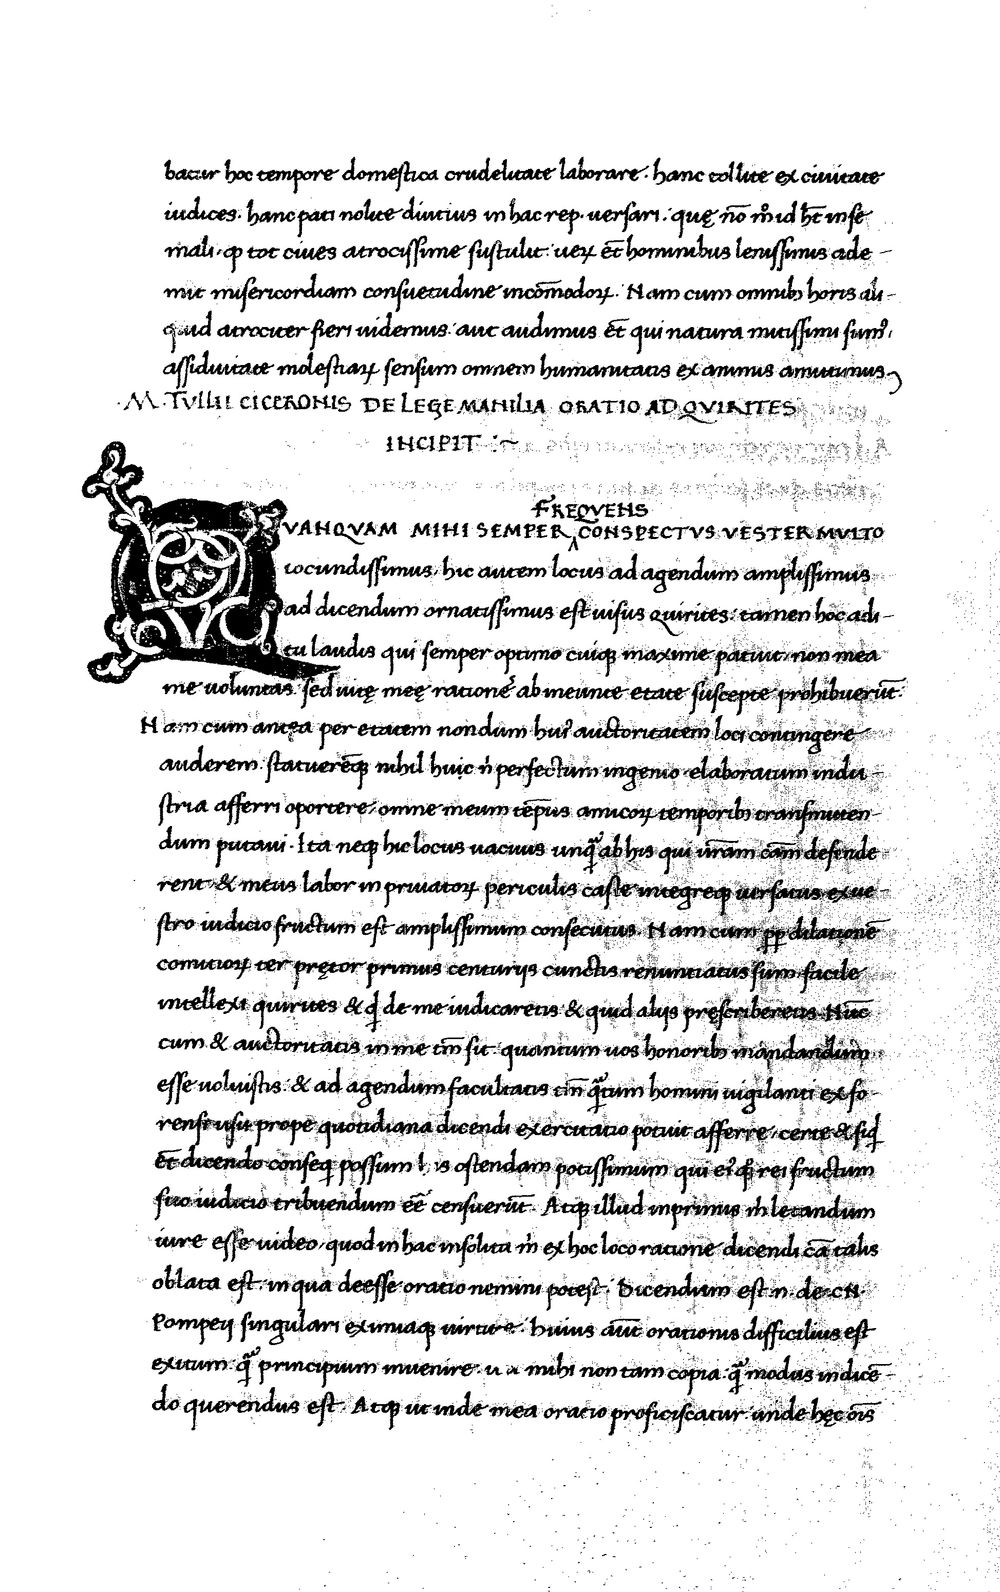 batur hoc tempore domestica crudelitate laborare. hanc tollite ex ciuitate
iudices. hanc pati nolite diutius in hac rep. uersari. quę nō m̊ id h̄t in se
mali. ꝙ tot ciues atrocissime sustulit. ueꝝ ēt hominibus lenissimis ade-
mit misericordiam consuetudine incōmodoꝝ. Nam cum omnibꝫ horis ali-
quid atrociter fieri uidemus. aut audimus ēt qui natura mitissimi sumꝰ.
assiduitate molestiaꝝ sensum omnem humanitatis ex animis amittimus
.M. TVLLII CICERONIS DE LEGE MANILIA ORATIO AD QVIRITES
INCIPIT :~
FREQVENS
QVANQVAM MIHI SEMPER CONSPECTVS VESTER MVLTO
iocundissimus. hic autem locus ad agendum amplissimus
ad dicendum ornatissimus est uisus quirites: tamen hoc adi-
tu laudis qui semper optimo cuiqꝫ maxime patuit. non mea
me voluntas. sed uitę meę rationeˢ ab ineunte etate suscepte prohibuerūt.
Nam cum antea per etatem nondum huiꝰ auctoritatem loci contingere
auderem. statueremqꝫ nihil huic n̄ perfectum ingenio elaboratum indu-
stria afferri oportere. omne meum tēpus amicoꝝ temporibꝫ transmitten-
dum putaui. Ita neqꝫ hic locus uacuus unq̃ ab his qui ur̄am cām defende
rent. & meus labor in priuatoꝝ periculis caste integreqꝫ uersatus ex ue-
stro iudicio fructum est amplissimum consecutus. Nam cum ꝓp dilationē
comitioꝝ ter pretor primus centurijs cunctis renuntiatus sum. facile
intellexi quirites & qd̄ de me iudicaretis & quid alijs pręscriberetis. Nūc
cum & auctoritatis in me tm̄ sit. quantum uos honoribꝫ mandandum
esse uoluistis. & ad agendum facultatis tm̄ q̃tum homini uigilanti ex fo-
rense usu prope quotidiana dicendi exercitatio potuit afferre. certe & siqd̄
ēt dicendo conseq̄ possum is ostendam potissimum qui ei rei fructum
suo iudicio tribuendum eē censuerūt. Atqꝫ illud inprimis m̄ letandum
iure esse uideo. quod in hac insolita m̄ ex hoc loco ratione dicendi cā talis
oblata est. in qua deesse oratio nemini potest. Dicendum est .n. de .CN.
Pompeij singulari eximiaqꝫ uirtute. huius aūt orationis difficilius est
exitum q̃ principium inuenire. mihi non tam copia q̃ modus in dicē-
do querendus est. Atqꝫ ut inde mea oratio proficiscatur. unde hęc oīs